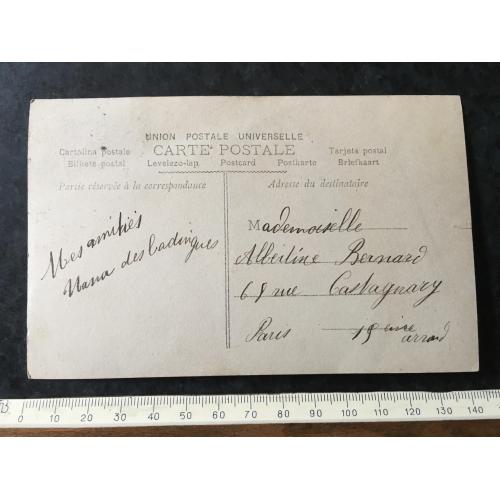 UNION POSTALE UNIVERSELLE
CARTE POSTALE
Cartolina postale
Tarjeta postal
Bilhete postal
Levelezo-lap
Postcard
Postkarte
Briefkaart
Partie réservée à la correspondance
Adresse du destinataire
Mes amitiés
Nana des badingues
Mademoiselle
Albertine Bernard
68 rue Castagnary
Paris 15 eme
arrond
0 10 20 30 40 50 60 70 80 90 100 110 120 130 140